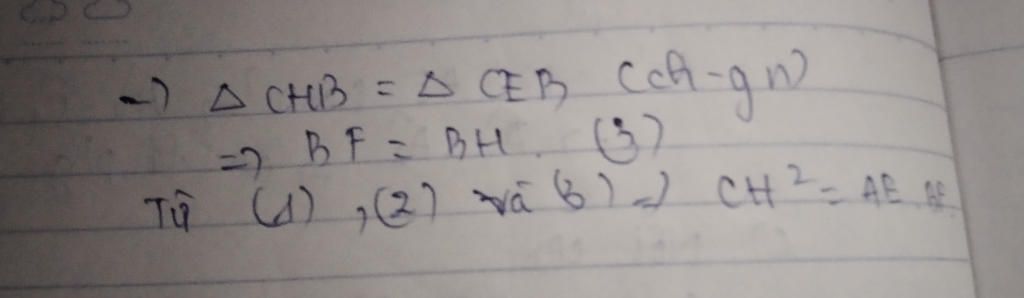 => Δ CHB = Δ CEB (ch-gn)
=> BF = BH. (3)
Từ (1), (2) và (3) => CH² = AE.